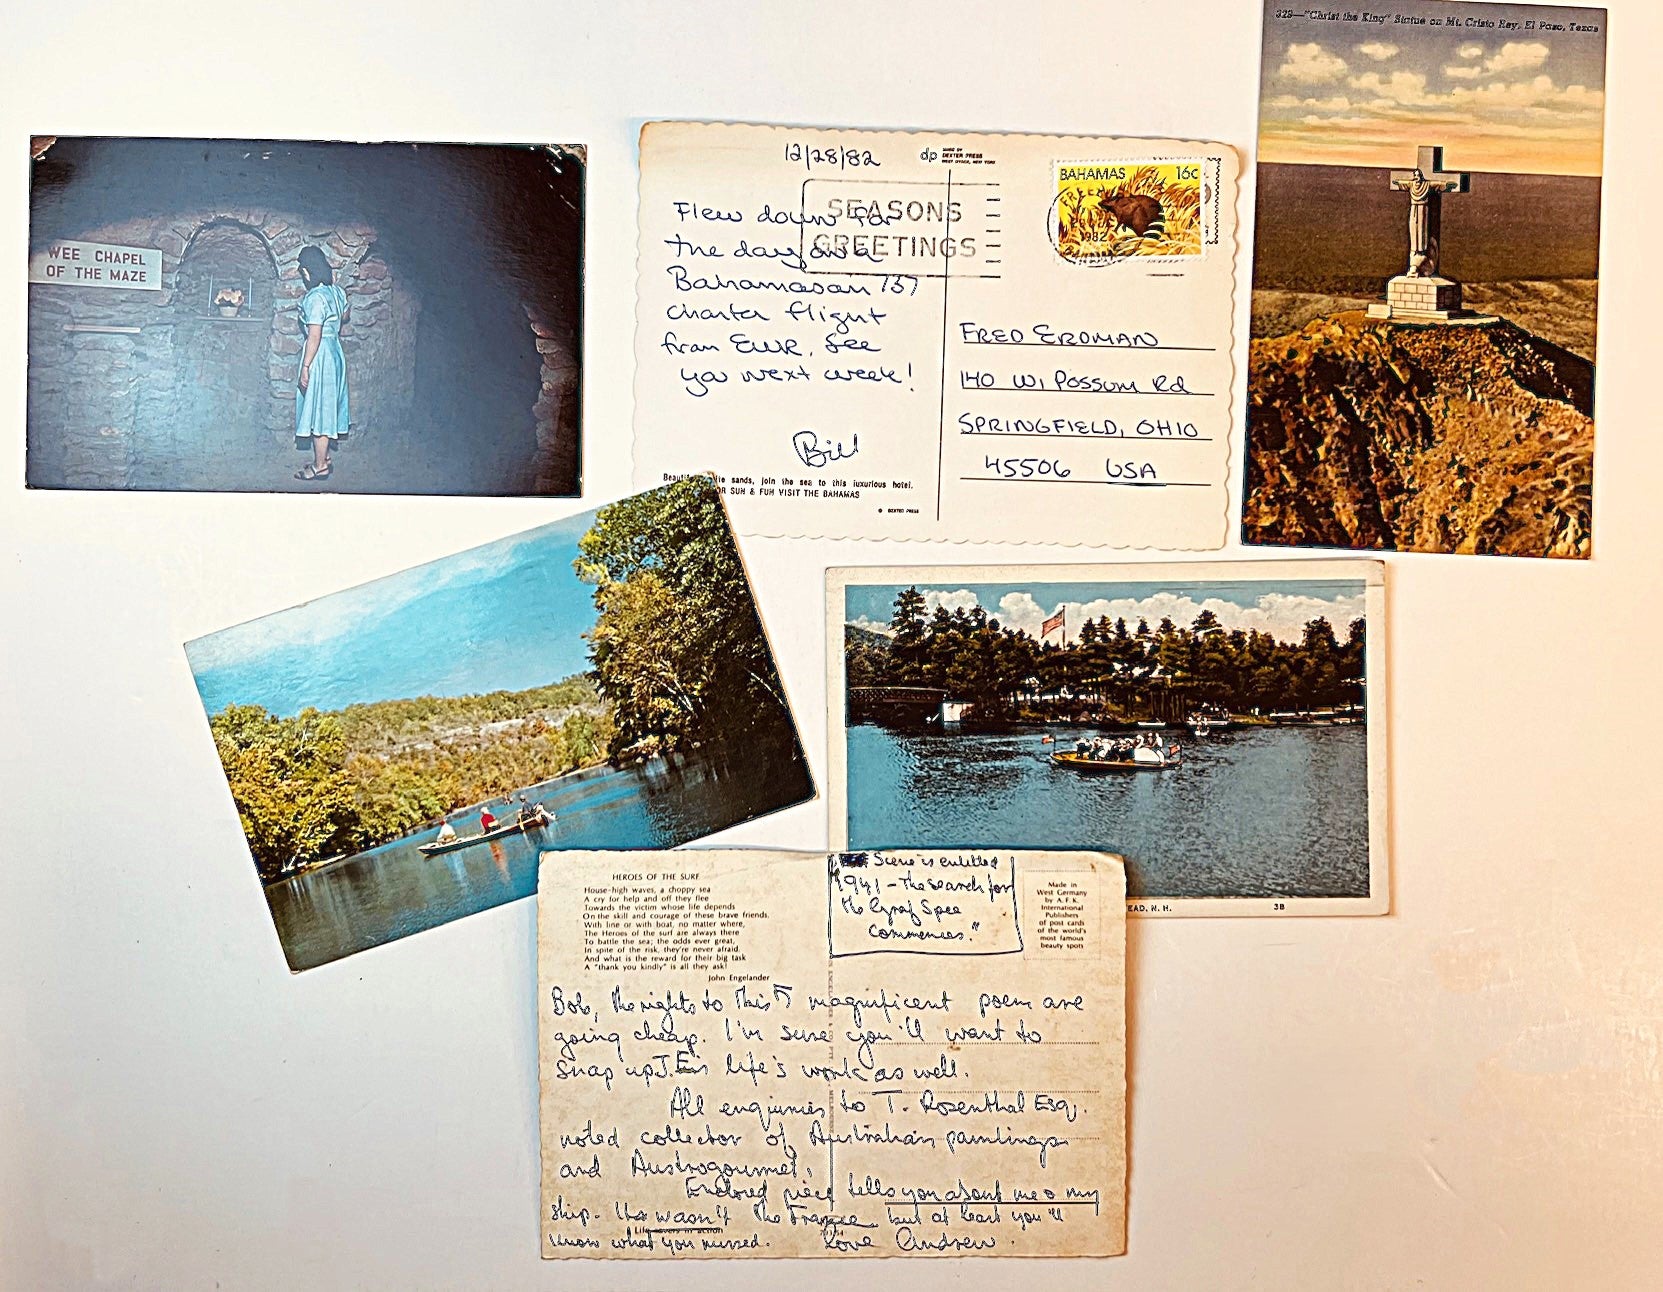 329—"Christ the King" Statue on Mt. Cristo Rey, El Paso, Texas
WEE CHAPEL
OF THE MAZE
12/28/82
dp
MADE BY
DEXTER PRESS
WEST NYACK, NEW YORK
SEASONS
GREETINGS
BAHAMAS 16c
1982
Flew down for
the day on a
Bahamasair 737
charter flight
from EWR. See
you next week!
Bill
FRED ERDMAN
140 W. POSSUM Rd
SPRINGFIELD, OHIO
45506 USA
sands, join the sea to this luxurious hotel.
OR SUN & FUN VISIT THE BAHAMAS
© DEXTER PRESS
EAD, N. H. 3B
HEROES OF THE SURF
House-high waves, a choppy sea
A cry for help and off they flee
Towards the victim whose life depends
On the skill and courage of these brave friends.
With line or with boat, no matter where,
The Heroes of the surf are always there
To battle the sea; the odds ever great,
In spite of the risk, they're never afraid.
And what is the reward for their big task
A "thank you kindly" is all they ask!
John Engelander
Scene is entitled
"1941 - the search for
the Graf Spee
commences."
Made in
West Germany
by A.F.K.
International
Publishers
of post cards
of the world's
most famous
beauty spots
Bob, the rights to this magnificent poem are
going cheap. I'm sure you'll want to
snap up J.E.'s life's work as well.
All enquiries to T. Rosenthal Esq.
noted collector of Australian paintings
and Austrogourmet.
Enclosed piece tells you about me & my
ship. It wasn't the France but at least you'll
know what you missed. Love Andrew.
Life savers in action